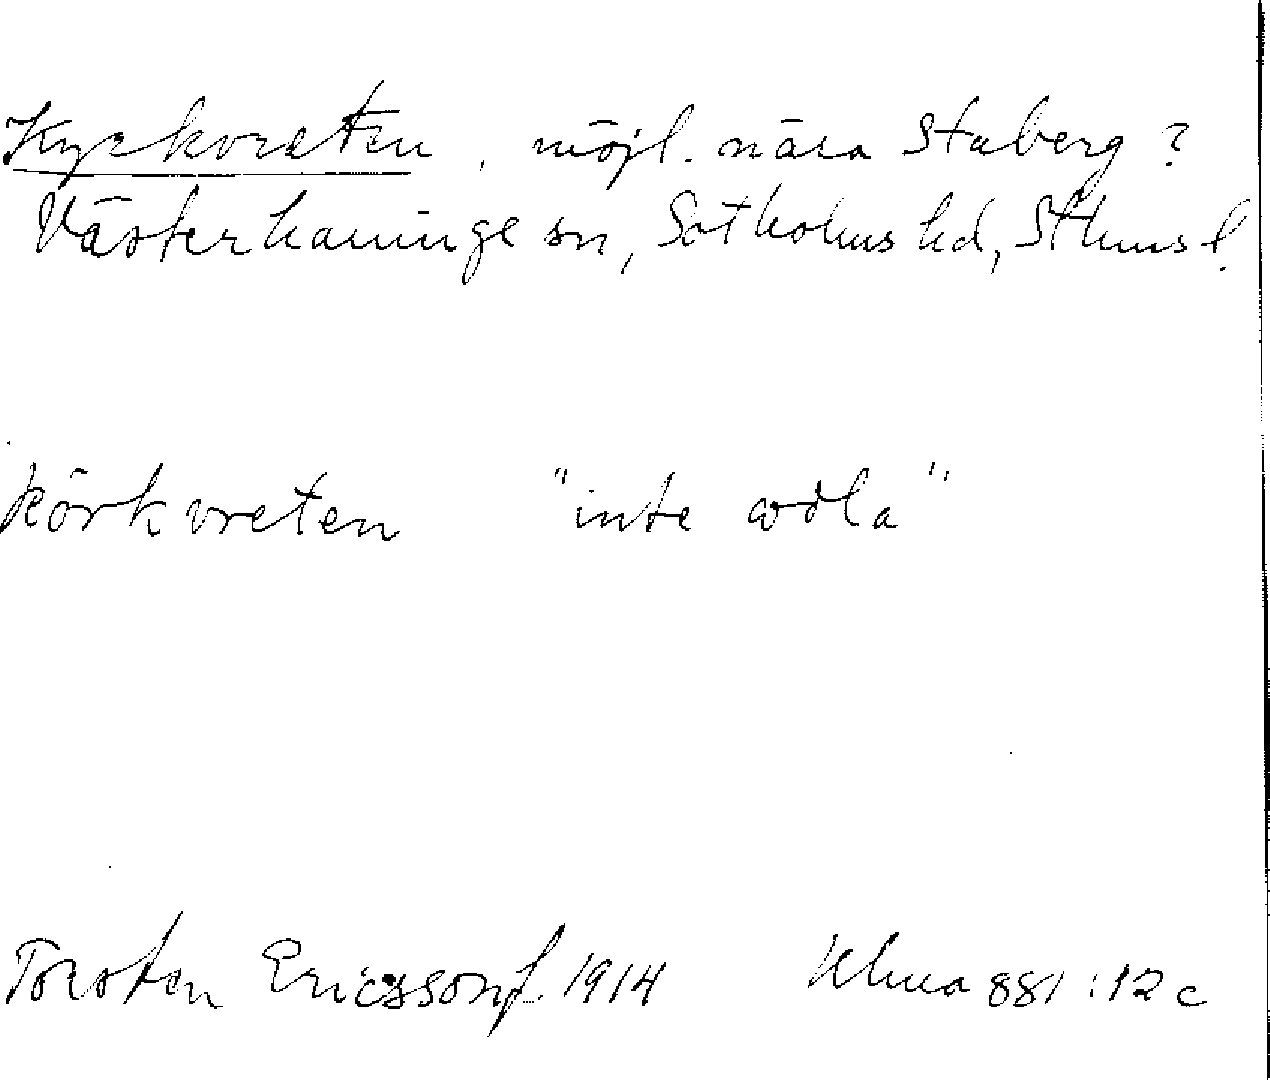 Kyrkvreten, möjl. nära Staberg?
Västerhaninge sn, Sotholms hd, Sthms l.
Körkvreten "inte odla"
Torsten Ericsson f. 1914 Uma 881:12 c